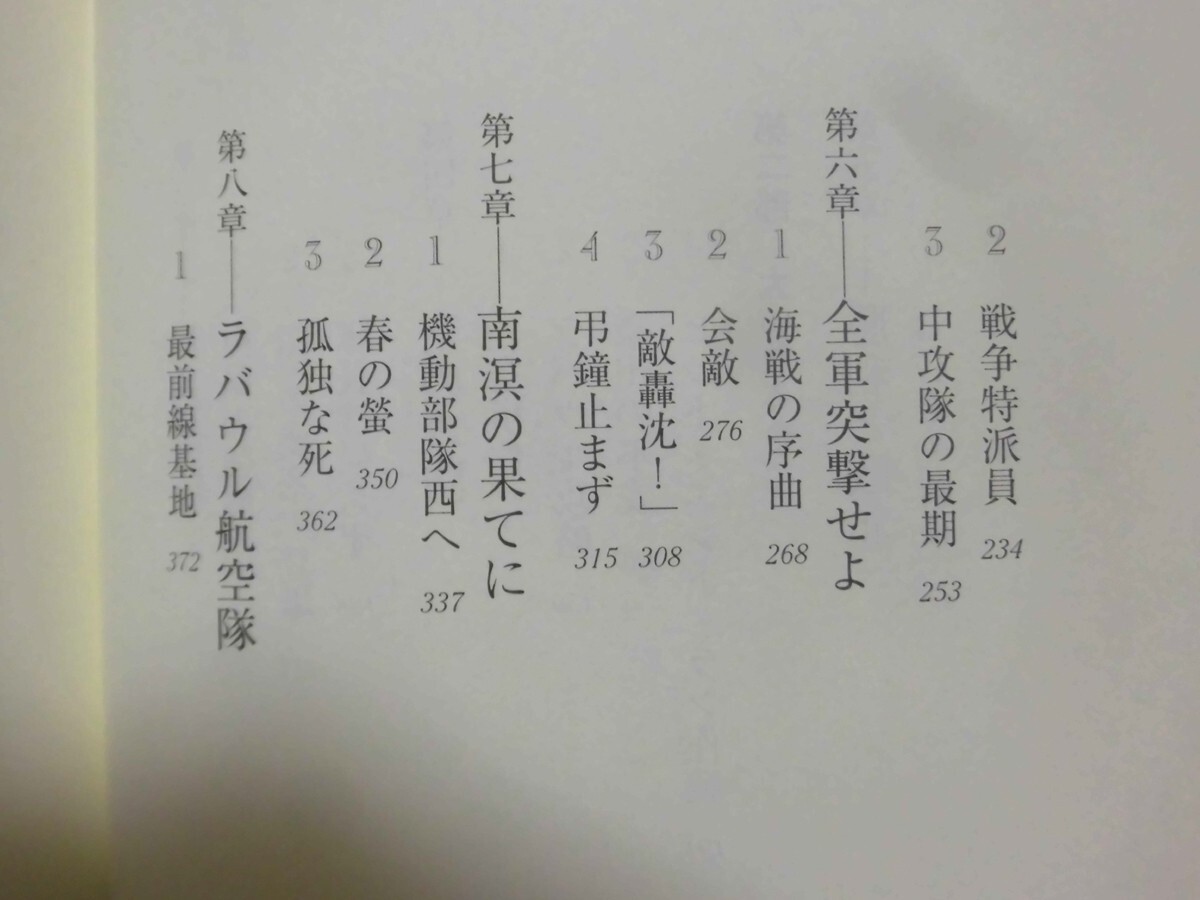 2 戦争特派員 234
3 中攻隊の最期 253
第六章――全軍突撃せよ
1 海戦の序曲 268
2 会敵 276
3 「敵轟沈！」 308
4 弔鐘止まず 315
第七章――南溟の果てに
1 機動部隊西へ 337
2 春の螢 350
3 孤独な死 362
第八章――ラバウル航空隊
1 最前線基地 372